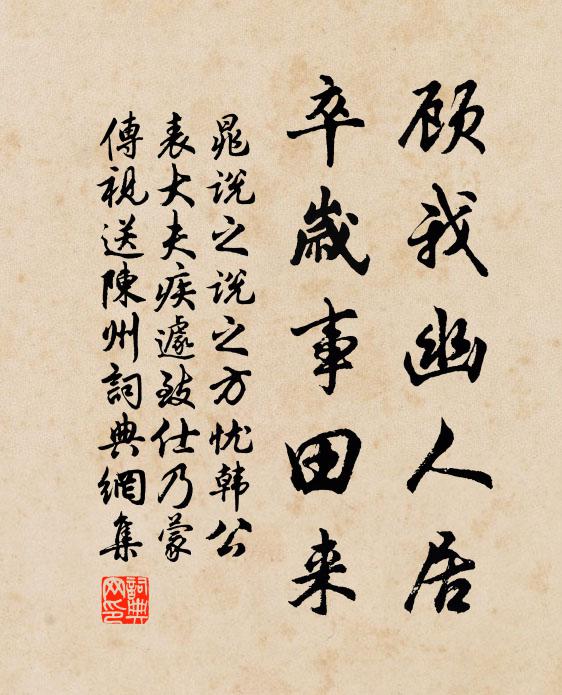 顾我幽人居
卒嵗事田来
晁説之説之方忧韓公
表大夫疾遽致仕乃蒙
傳視送陳州詞典網集
詞典网印